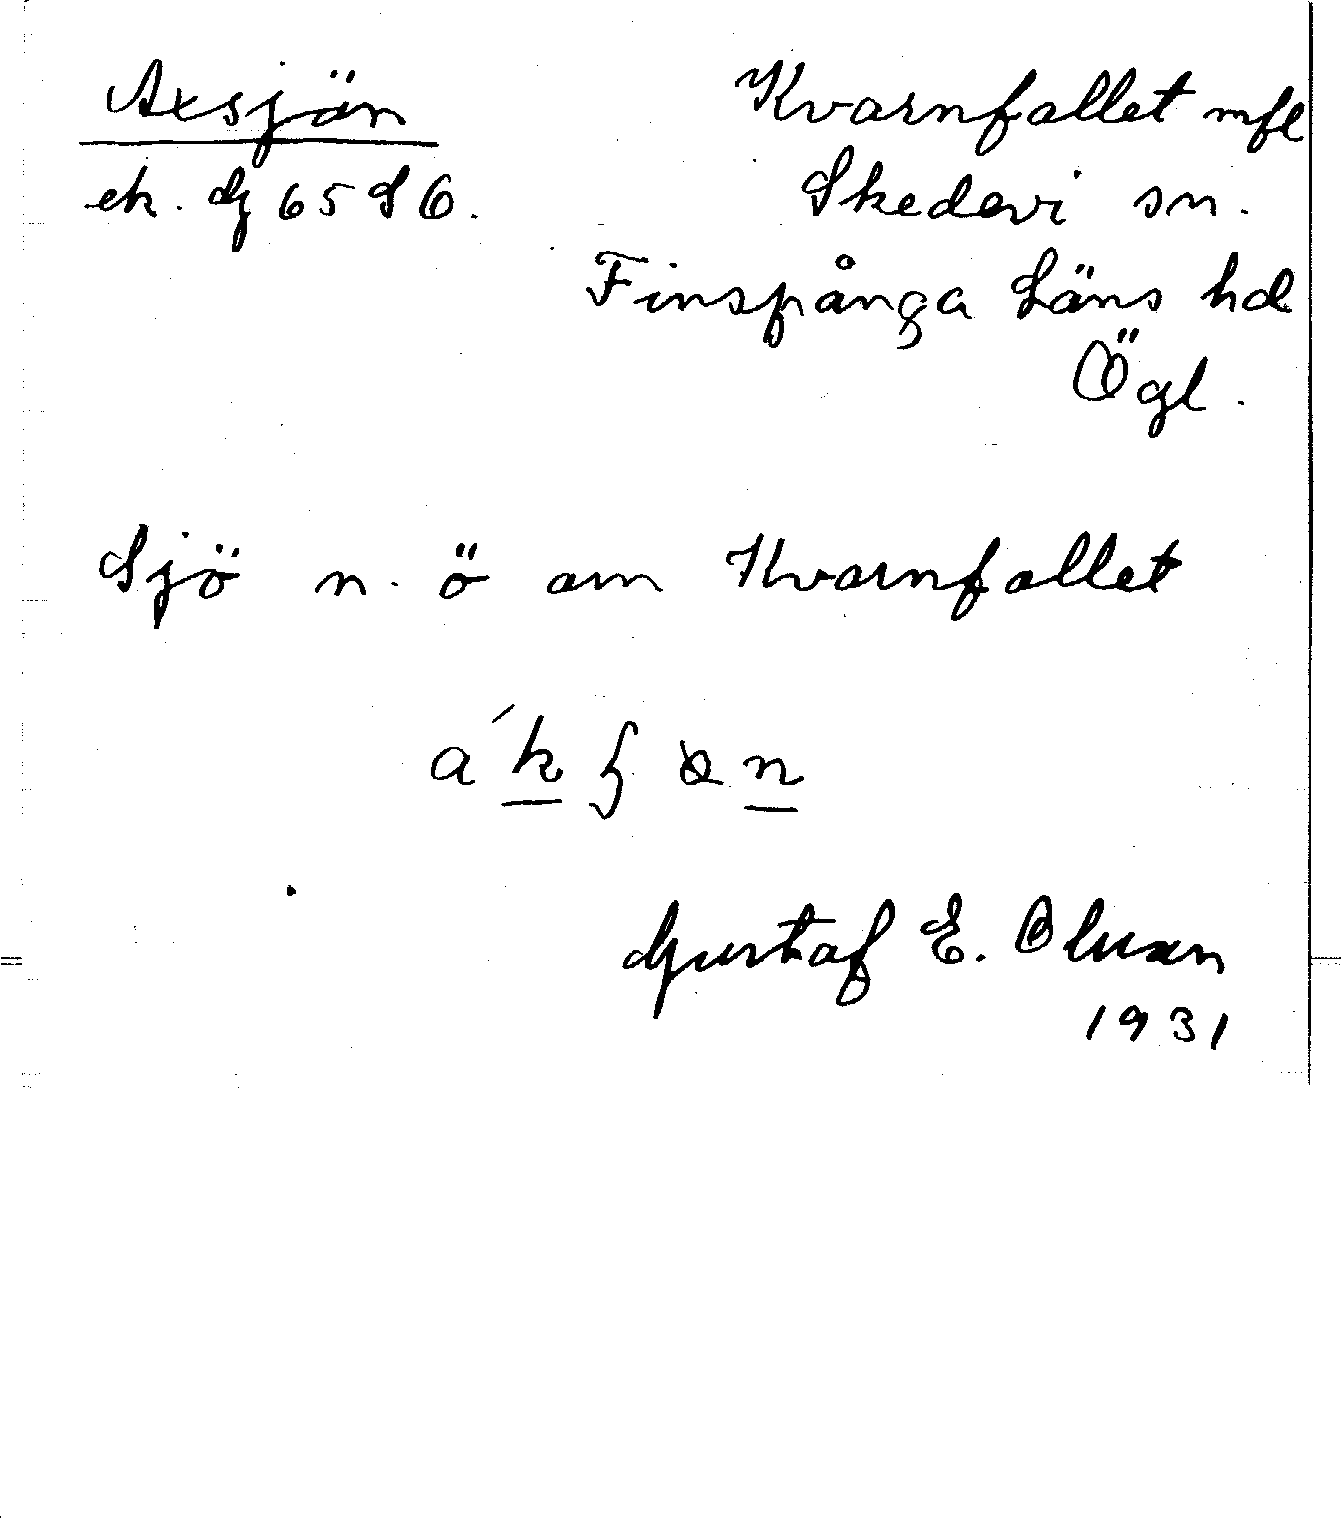 Axsjön Kvarnfallet mfl
ek. dg 65 SÖ. Skedevi sn.
Finspånga Läns hd
Ögl.
Sjö n. ö om Kvarnfallet
Gustaf E.
1931